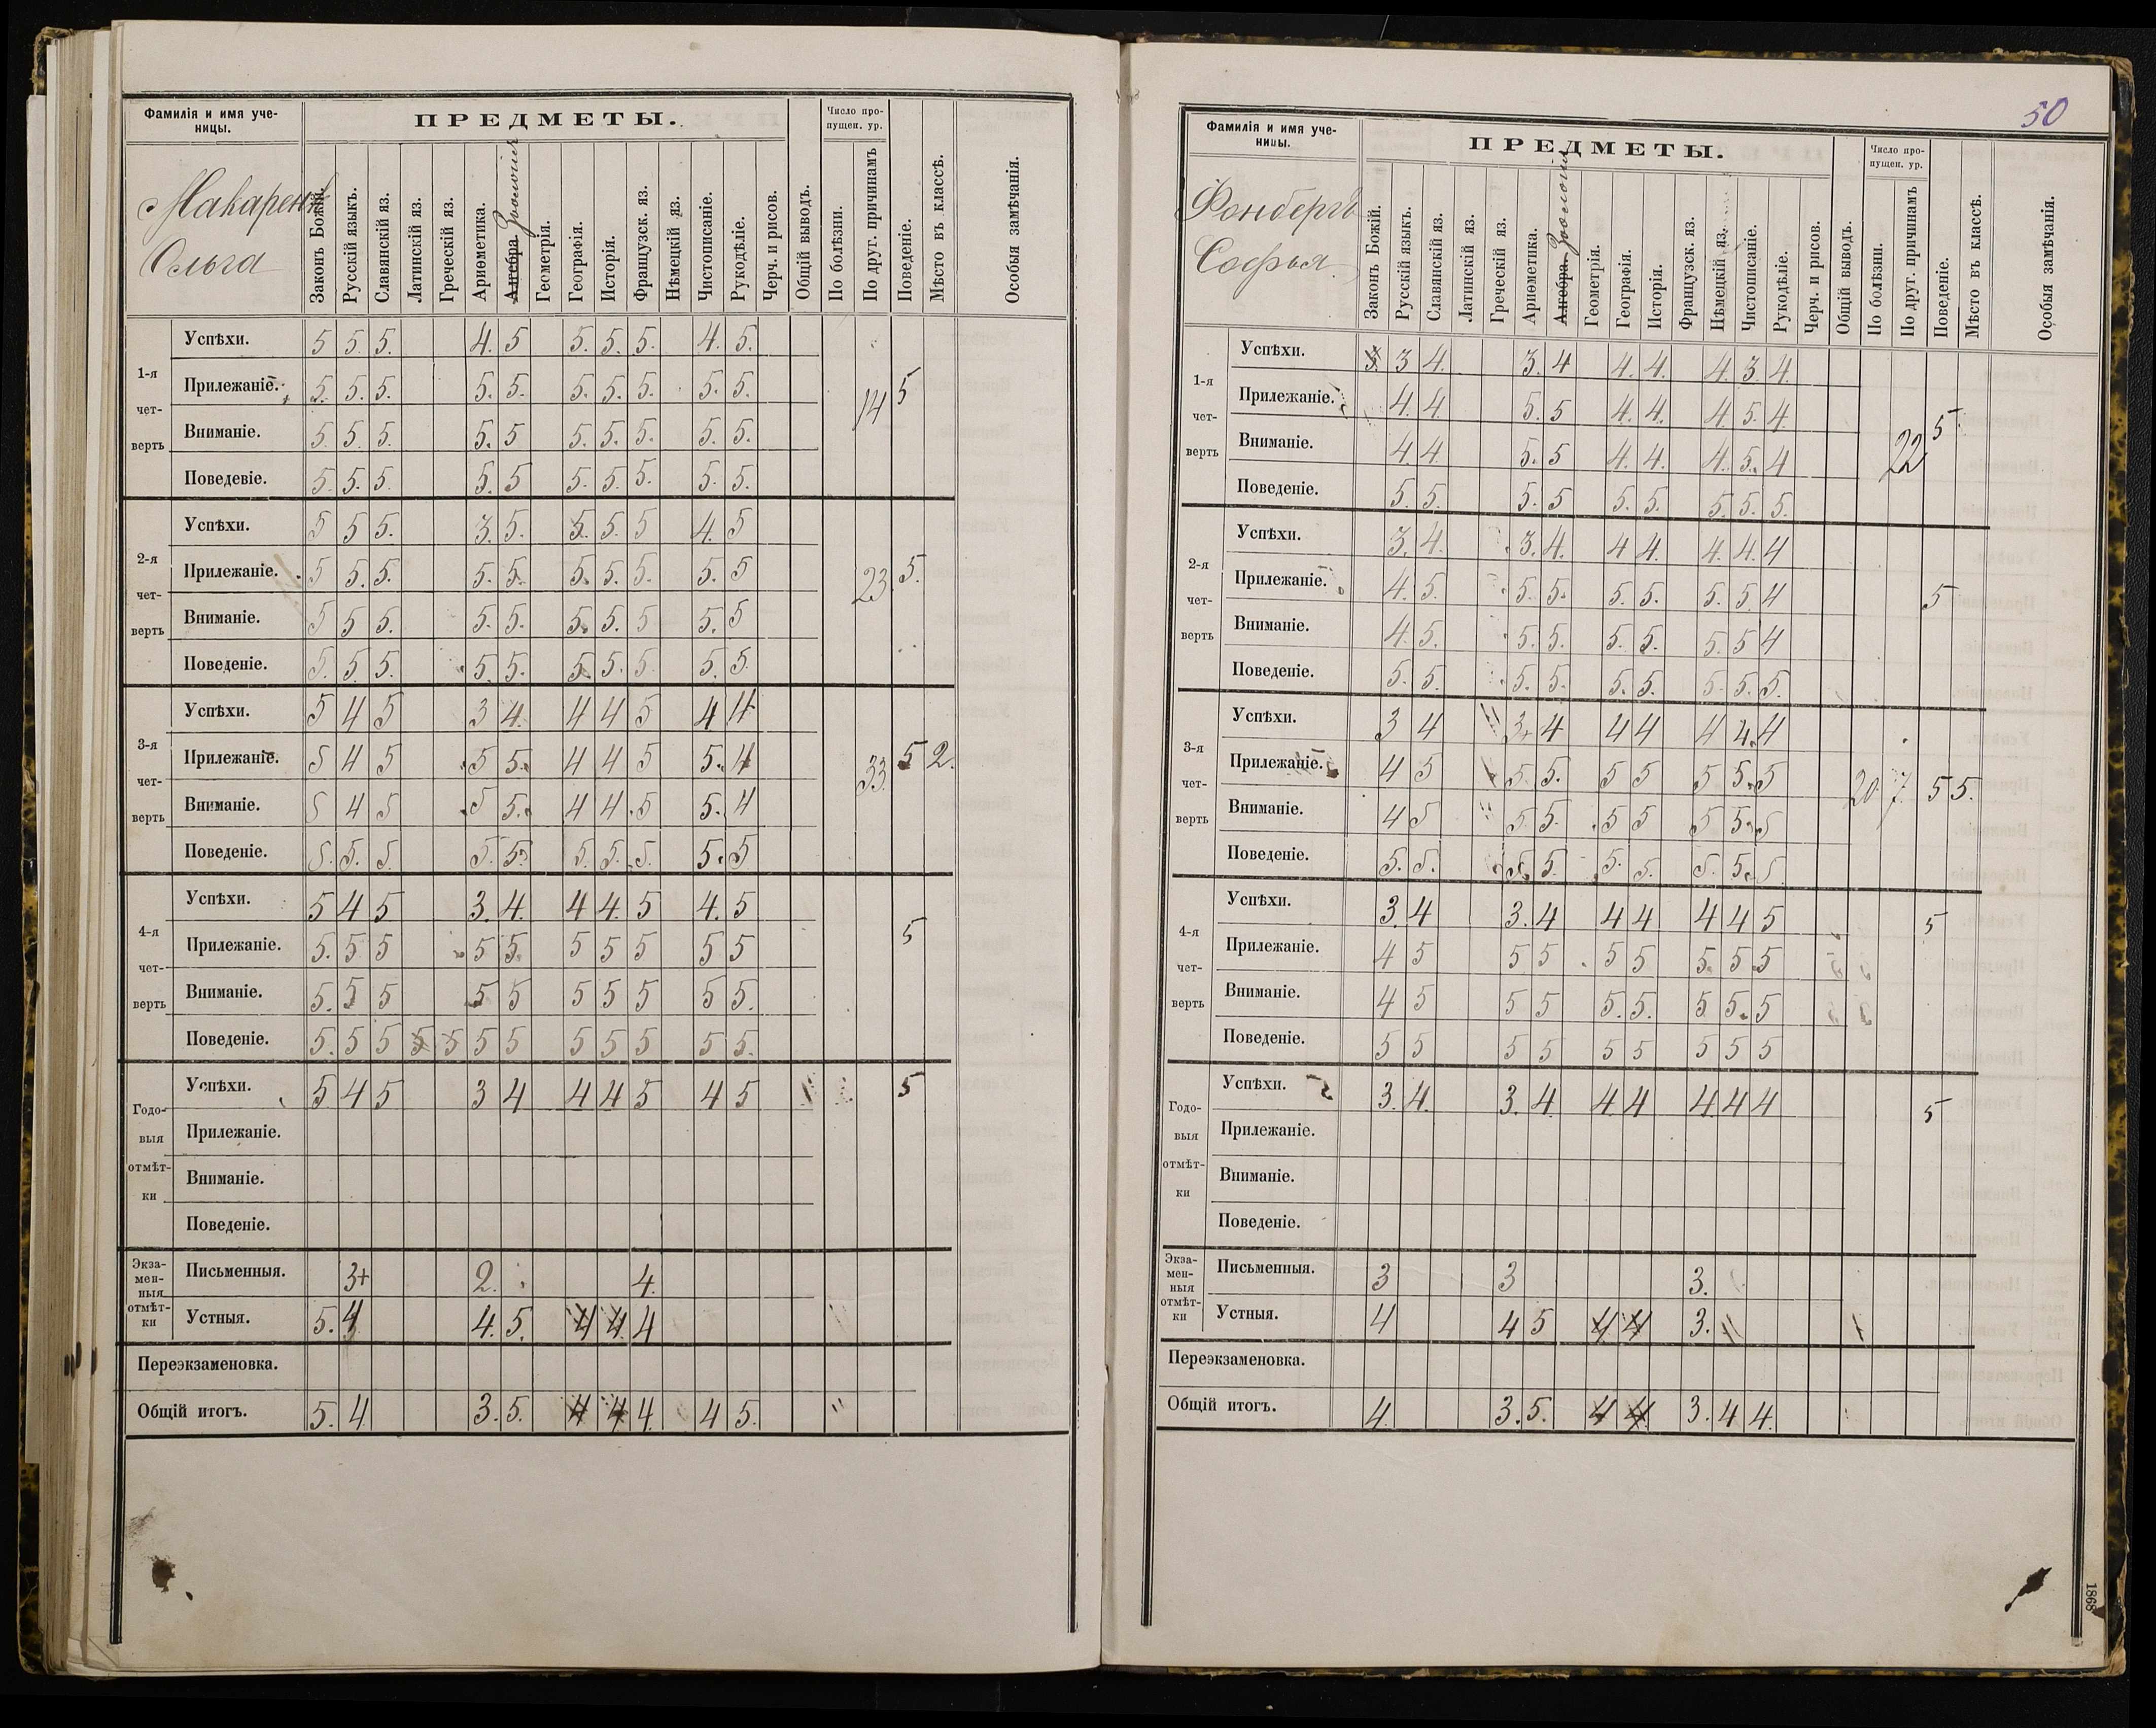 Фамилія и имя уче-
ницы.
ПРЕДМЕТЫ.
Число про-
пущен. ур.
Макаренко
Ольга
Законъ Божій.
Русскій языкъ.
Славянскій яз.
Латинскій яз.
Греческій яз.
Ариѳметика.
Алгебра. Зоологія
Геометрія.
Географія.
Исторія.
Французск. яз.
Нѣмецкій яз.
Чистописаніе.
Рукодѣліе.
Черч. и рисов.
Общій выводъ.
По болѣзни.
По друг. причинамъ
Поведеніе.
Мѣсто въ классѣ.
Особыя замѣчанія.
1-я
чет-
верть
Успѣхи. 5 5 5. 4. 5 5. 5. 5. 4. 5.
Прилежаніе. 5. 5. 5. 5. 5. 5. 5. 5. 5. 5. 14 5
Вниманіе. 5. 5. 5. 5. 5 5. 5. 5. 5. 5.
Поведевіе. 5. 5. 5. 5. 5 5. 5. 5. 5. 5.
2-я
чет-
верть
Успѣхи. 5 5 5. 3. 5. 5. 5. 5 4. 5
Прилежаніе. 5 5. 5. 5. 5. 5. 5. 5. 5. 5 23. 5.
Вниманіе. 5 5 5. 5. 5. 5. 5. 5 5. 5
Поведеніе. 5. 5. 5. 5. 5. 5. 5. 5. 5. 5.
3-я
чет-
верть
Успѣхи. 5 4 5 3 4. 4 4 5 4 4
Прилежаніе. 5 4 5 5 5. 4 4 5 5. 4 33. 5 2.
Вниманіе. 5 4 5 5 5. 4 4 5 5. 4
Поведеніе. 5. 5. 5. 5. 5. 5. 5. 5. 5. 5
4-я
чет-
верть
Успѣхи. 5 4 5 3. 4. 4 4. 5 4. 5
Прилежаніе. 5. 5 5 5 5. 5 5 5 5 5 5
Вниманіе. 5. 5 5 5 5 5 5 5 5 5.
Поведеніе. 5. 5 5 5 5 5 5 5 5 5 5 5.
Годо-
выя
отмѣт-
ки
Успѣхи. 5 4 5 3 4 4 4 5 4 5 5
Прилежаніе.
Вниманіе.
Поведеніе.
Экза-
мен-
ныя
отмѣт-
ки
Письменныя. 3+ 2. 4.
Устныя. 5. 4 4. 5. 4 4. 4
Переэкзаменовка.
Общій итогъ. 5. 4 3. 5. 4 4 4. 4 5.
50
Фамилія и имя уче-
ницы.
ПРЕДМЕТЫ.
Число про-
пущен. ур.
Фонбергъ
Софья.
Законъ Божій.
Русскій языкъ.
Славянскій яз.
Латинскій яз.
Греческій яз.
Ариѳметика.
Алгебра. Зоологія
Геометрія.
Географія.
Исторія.
Французск. яз.
Нѣмецкій яз.
Чистописаніе.
Рукодѣліе.
Черч. и рисов.
Общій выводъ.
По болѣзни.
По друг. причинамъ
Поведеніе.
Мѣсто въ классѣ.
Особыя замѣчанія.
1-я
чет-
верть
Успѣхи. 3 4. 3. 4 4. 4. 4. 3. 4.
Прилежаніе. 4. 4. 5. 5 4. 4. 4 5. 4.
Вниманіе. 4. 4. 5. 5 4. 4. 4. 5. 4 22 5
Поведеніе. 5. 5. 5. 5 5. 5. 5. 5. 5.
2-я
чет-
верть
Успѣхи. 3. 4. 3. 4. 4 4. 4. 4. 4
Прилежаніе. 4. 5. 5. 5. 5. 5. 5. 5. 4 5
Вниманіе. 4. 5. 5. 5. 5. 5. 5. 5 4
Поведеніе. 5. 5. 5. 5. 5. 5. 5. 5. 5.
3-я
чет-
верть
Успѣхи. 3 4 3+ 4 4 4 4 4. 4
Прилежаніе. 4 5 5. 5. 5 5 5 5. 5 20. 7. 5 5.
Вниманіе. 4 5 5 5. 5 5 5 5. 5
Поведеніе. 5. 5. 5. 5. 5. 5. 5. 5. 5.
4-я
чет-
верть
Успѣхи. 3. 4 3. 4 4 4 4 4 5 5
Прилежаніе. 4 5 5 5 5 5 5. 5 5
Вниманіе. 4 5 5 5 5. 5. 5 5. 5
Поведеніе. 5 5 5 5 5 5 5 5 5
Годо-
выя
отмѣт-
ки
Успѣхи. 3. 4. 3. 4. 4. 4 4 4 4 5
Прилежаніе.
Вниманіе.
Поведеніе.
Экза-
мен-
ныя
отмѣт-
ки
Письменныя. 3 3 3.
Устныя. 4 4 5 4 4 3.
Переэкзаменовка.
Общій итогъ. 4. 3. 5. 4 4 3. 4 4.
1868